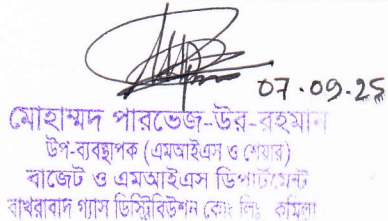 07.09.25
মোহাম্মদ পারভেজ-উর-রহমান
উপ-ব্যবস্থাপক (এমআইএস ও শেয়ার)
বাজেট ও এমআইএস ডিপার্টমেন্ট
বাখরাবাদ গ্যাস ডিস্ট্রিবিউশন কোঃ লিঃ কুমিল্লা